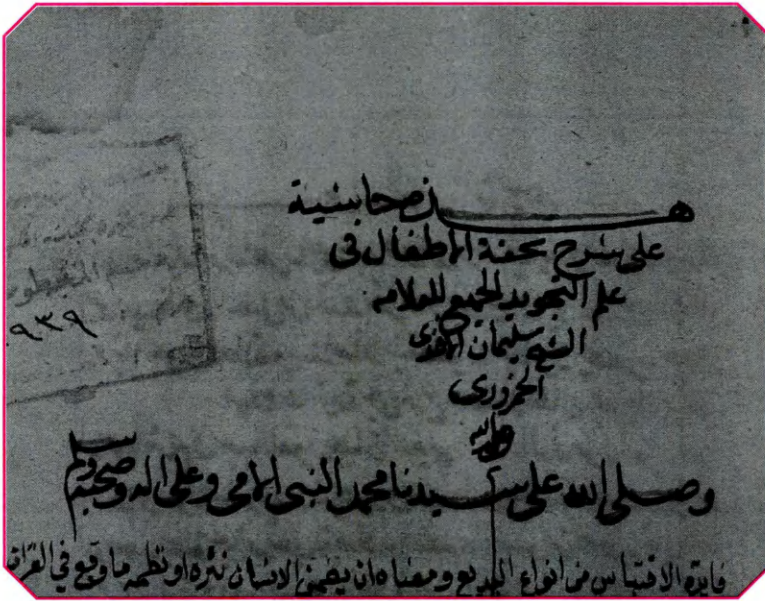 هذه حاشية
على شرح تحفة الاطفال فى
علم التجويد الجميع للعلامه
الشيخ سليمان
الجمزورى
وصلى الله على سيدنا محمد النبى الامى وعلى اله وصحبه وسلم
فايدة الاقتباس من انواع البديع ومعناه ان يضمن الانسان نثره او نظمه ما وقع في القران
٩٣٩